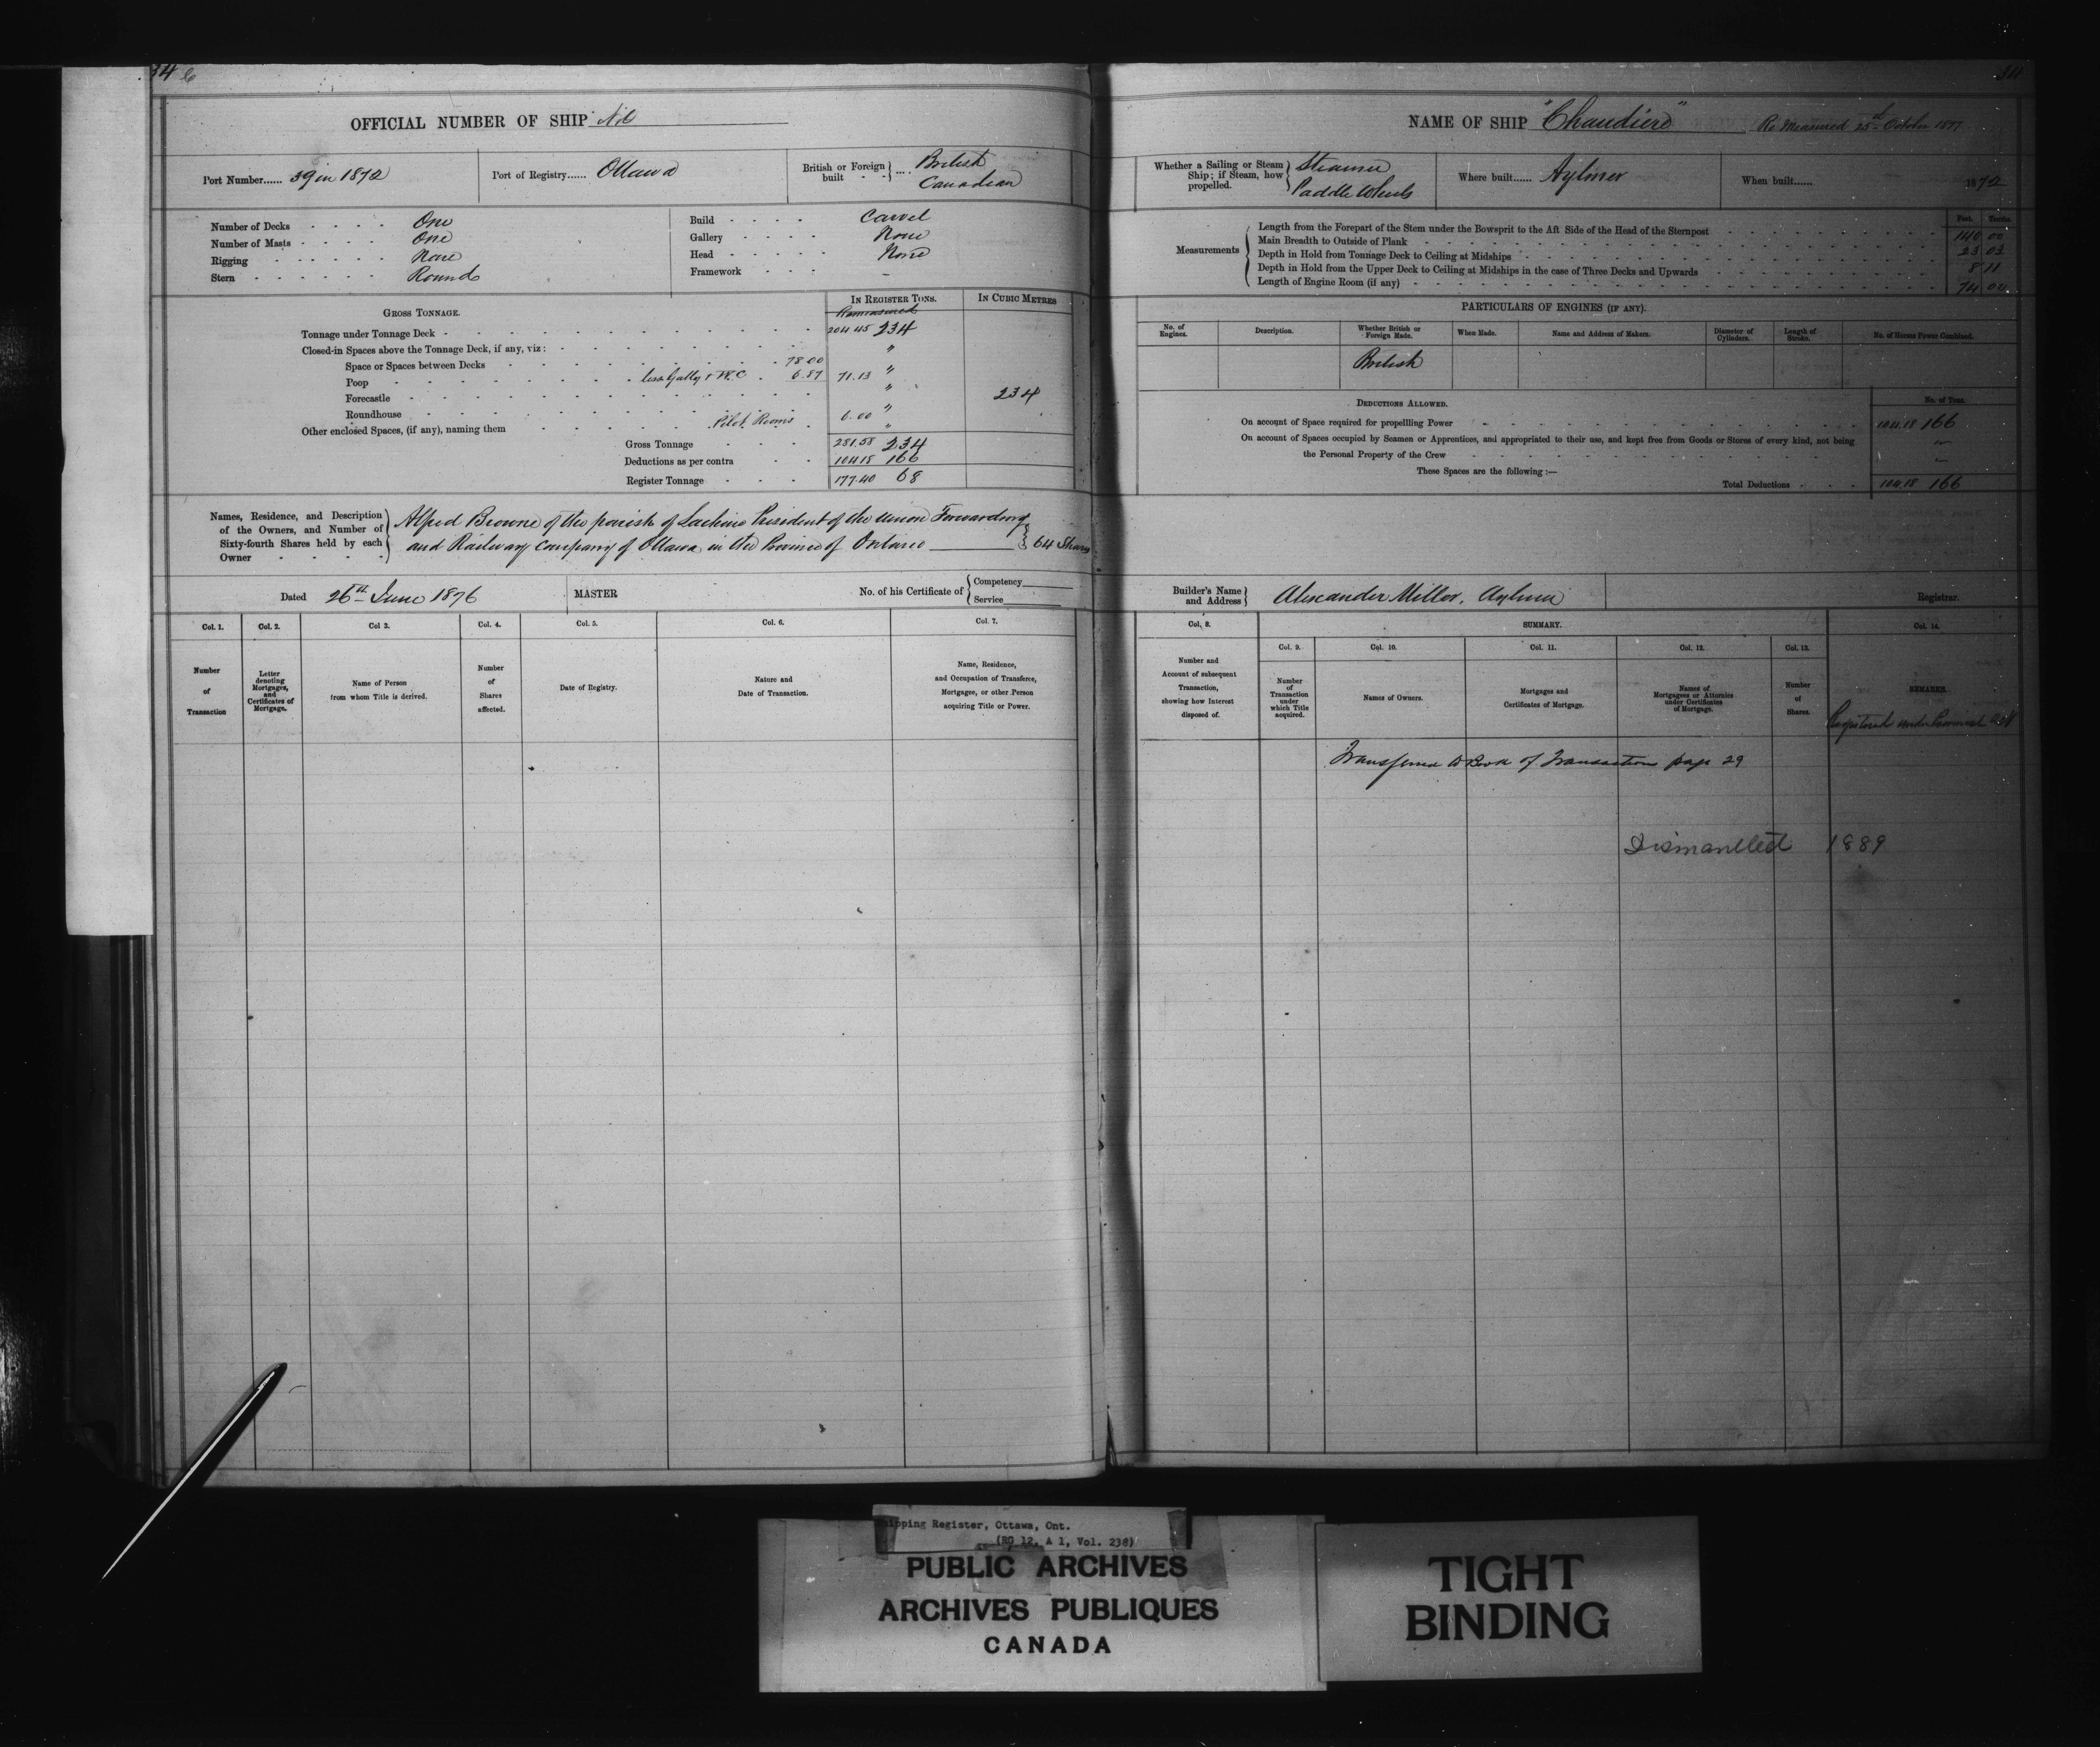 34
OFFICIAL NUMBER OF SHIP No
Port Number...... 39 in 1872
Port of Registry...... Ottawa
British or Foreign built - - } .... British Canadian
Number of Decks - - - - One
Number of Masts - - - - One
Rigging - - - - - None
Stern - - - - - - Round
Build - - - - Carvel
Gallery - - - - None
Head - - - - - None
Framework - - - –
GROSS TONNAGE.
IN REGISTER TONS.
IN CUBIC METRES
Remeasured
Tonnage under Tonnage Deck - 204.45 234
Closed-in Spaces above the Tonnage Deck, if any, viz: - "
Space or Spaces between Decks - 78.00
Poop - less Gally & W.C - 6.87 71.13 "
Forecastle - "
234
Roundhouse - 6.00 "
Other enclosed Spaces, (if any), naming them - Pilot Rooms "
Gross Tonnage - - 281.58 234
Deductions as per contra - - 104.18 166
Register Tonnage - - - 177.40 68
Names, Residence, and Description of the Owners, and Number of Sixty-fourth Shares held by each Owner - - - -
Alfred Browne of the parish of Lachine President of the Union Forwarding
and Railway Company of Ottawa in the Province of Ontario } 64 Shares
Dated 26th June 1876
MASTER
No. of his Certificate of { Competency
Service
Col. 1.
Col. 2.
Col 3.
Col. 4.
Col. 5.
Col. 6.
Col. 7.
Number of Transaction
Letter denoting Mortgages, and Certificates of Mortgage.
Name of Person from whom Title is derived.
Number of Shares affected.
Date of Registry.
Nature and Date of Transaction.
Name, Residence, and Occupation of Transferee, Mortgagee, or other Person acquiring Title or Power.
NAME OF SHIP "Chaudiere" Re Measured 25th October 1877
Whether a Sailing or Steam Ship; if Steam, how propelled. } Steamer Paddle Wheels
Where built...... Aylmer
When built...... 1872
Feet. Tenths.
Measurements
Length from the Forepart of the Stem under the Bowsprit to the Aft Side of the Head of the Sternpost - 140 00
Main Breadth to Outside of Plank - 23 03
Depth in Hold from Tonnage Deck to Ceiling at Midships - 8 11
Depth in Hold from the Upper Deck to Ceiling at Midships in the case of Three Decks and Upwards -
Length of Engine Room (if any) - 74 00
PARTICULARS OF ENGINES (IF ANY).
No. of Engines.
Description.
Whether British or Foreign Made.
When Made.
Name and Address of Makers.
Diameter of Cylinders.
Length of Stroke.
No. of Horses Power Combined.
British
DEDUCTIONS ALLOWED.
No. of Tons.
On account of Space required for propellling Power - 104.18 166
On account of Spaces occupied by Seamen or Apprentices, and appropriated to their use, and kept free from Goods or Stores of every kind, not being
the Personal Property of the Crew -
These Spaces are the following :—
Total Deductions - - - 104.18 166
Builder's Name and Address } Alexander Miller, Aylmer
Registrar.
Col. 8.
SUMMARY.
Col. 14.
Col. 9.
Col. 10.
Col. 11.
Col. 12.
Col. 13.
Number and Account of subsequent Transaction, showing how Interest disposed of.
Number of Transaction under which Title acquired.
Names of Owners.
Mortgages and Certificates of Mortgage.
Names of Mortgagees or Attornies under Certificates of Mortgage.
Number of Shares.
REMARKS.
Registered under
Transferred to Book of Transaction page 29
Dismantled 1889
Shipping Register, Ottawa, Ont.
(RG 12, A 1, Vol. 238)
PUBLIC ARCHIVES
ARCHIVES PUBLIQUES
CANADA
TIGHT
BINDING